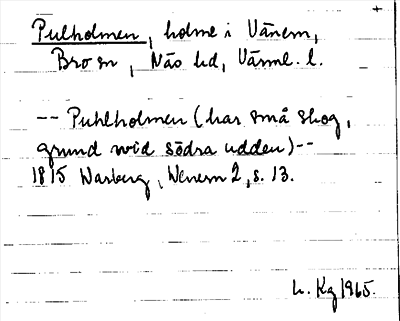 Pulholmen, holme i Vänern,
Bro sn, Näs hd, Värml. l.
-- Puhlholmen (har små skog,
grund wid södra udden) --
1815 Warberg, Wenern 2, s. 13.
h. Kg 1965.